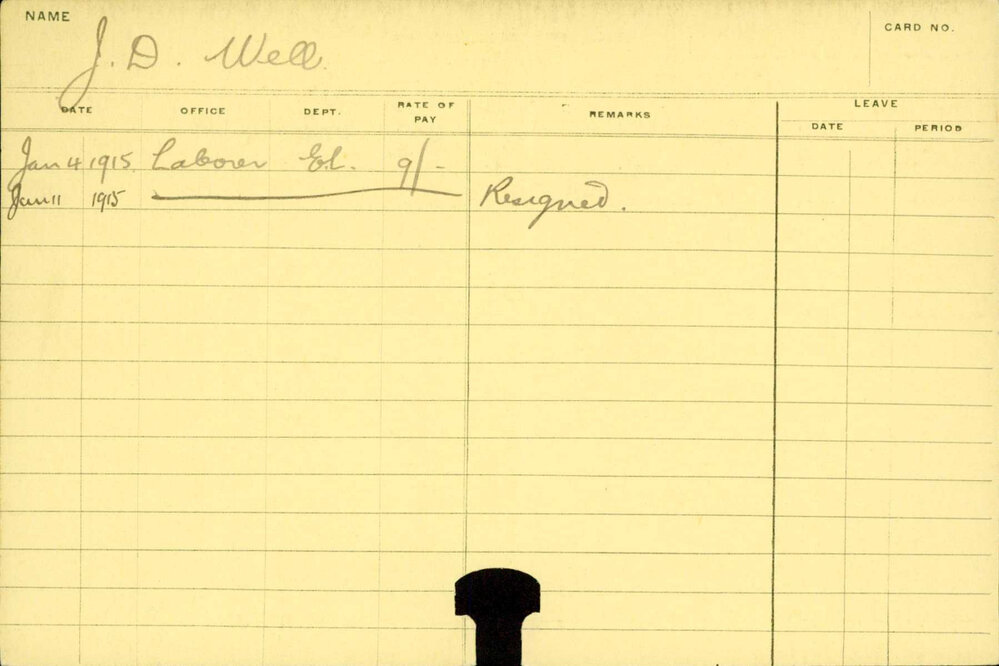 NAME J. D. Well CARD NO.
DATE OFFICE DEPT. RATE OF PAY REMARKS LEAVE
DATE PERIOD
Jan 4 1915 Laborer El. 9/-
Jan 11 1915 Resigned.